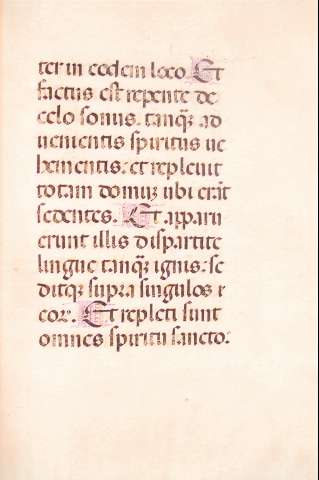 ter in eodem loco. Et
factus est repente de
celo sonus. tanq̃ ad
uenientis spiritus ue
hementis: et repleuit
totam domuʒ ubi erãt
sedentes. Et apparu
erunt illis dispartite
lingue tanq̃ ignis: se
ditq̃ supra singulos e
eor. Et repleti sunt
omnes spiritu sancto.